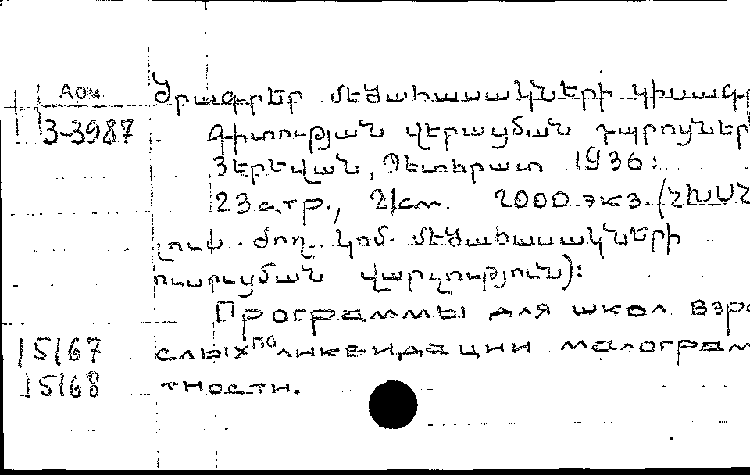 Арм.
3-3987
Ծրագրեր մեծահասակների կիսագր
գիտության վերացման դպրոցներ
Յերեվան, Պետհրատ 1936:
23 стр., 21 см. 2000 экз. (ՀԽՍՀ
լուս. ժող. կոմ. մեծահասակների
ուսուցման վարչություն):
Программы для школ взро
слых по ликвидации малограм
тности.
15167
15168